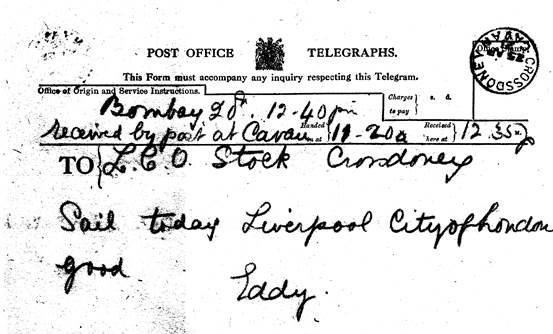 POST OFFICE TELEGRAPHS.
This Form must accompany any inquiry respecting this Telegram.
Office of Origin and Service Instructions.
Office Stamp
CROSSDONEY
CAVAN
Bombay 12-40 pm
Charges to pay } s. d.
received by post at Cavan Handed in at } 11-20a Received here at } 12.35
TO { L.C.O. Stock Crossdoney
Sail today Liverpool CityofLondon
good
Eddy.